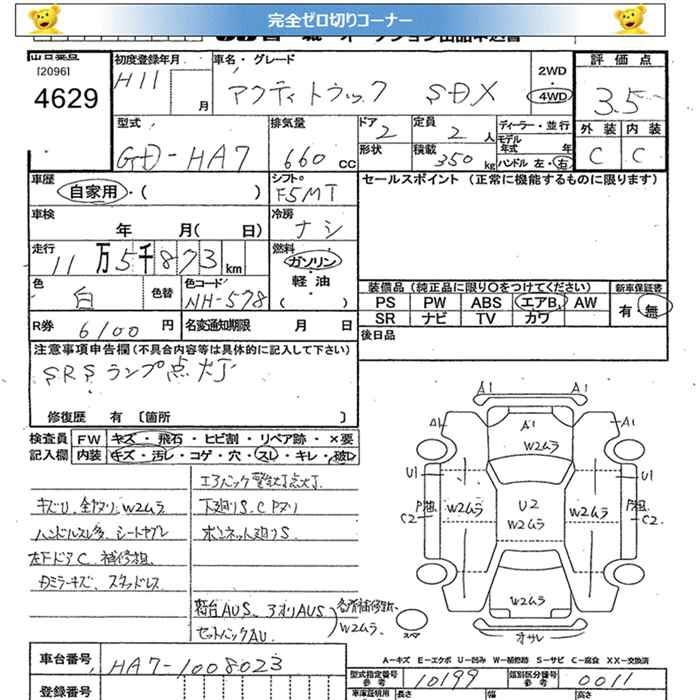 完全ゼロ切りコーナー
[2096]
4629
初度登録年月
H11
月
車名・グレード
アクティトラック SDX
2WD
4WD
評価点
3.5
外装 内装
C C
型式
GD-HA7
排気量
660 CC
ドア
2
形状
定員
2 人
積載
350 kg
ディーラー・並行
モデル年式 年
ハンドル 左・右
車歴
自家用・( )
シフト
F5MT
セールスポイント (正常に機能するものに限ります)
車検
年 月( 日)
冷房
ナシ
走行
11万5千873 km
燃料
ガソリン
軽油
( )
色
白
色替
色コード
NH-578
装備品 (純正品に限り○をつけてください)
新車保証書
PS PW ABS エアB. AW
SR ナビ TV カワ
有・無
R券
6100 円
名変通知期限 月 日
後日品
注意事項申告欄 (不具合内容等は具体的に記入して下さい)
SRSランプ点灯
修復歴 有 〔箇所 〕
検査員記入欄
FW キズ・飛石・ヒビ割・リペア跡・×要
内装 キズ・汚レ・コゲ・穴・スレ・キレ・破レ
エアバック警告灯点灯
キズU、全塗り、W2ムラ
下廻りS、C Pヌリ
ハンドルスレ多、シートヤブレ
ボンネット廻りS
左下ドアC、補修粗
Dミラーキズ、スタッドレス
荷台AUS、アオリAUS
セットバックAU
各所補修跡、W2ムラ
A1 A1
A1 A1 A1
W2ムラ
U1 U1
P粗 C2
W2ムラ
U2
W2ムラ
W2ムラ
P粗 C2
W2ムラ
スペア
オサレ
A―キズ E―エクボ U―凹み W―補修跡 S―サビ C―腐食 XX―交換済
車台番号
HA7-1008023
登録番号
型式指定番号 参考
10199
類別区分番号 参考
0011
車庫証明用 長さ 幅 高さ